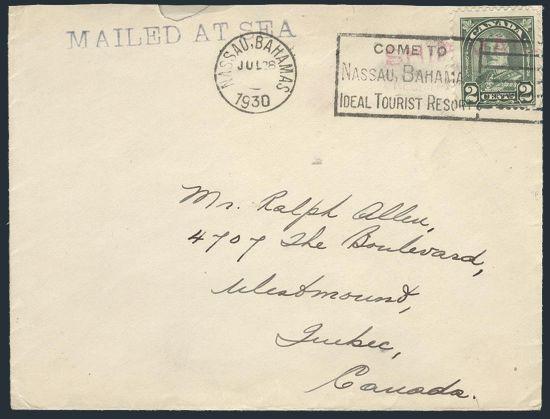 MAILED AT SEA
NASSAU, BAHAMAS
JUL 28
1930
COME TO
NASSAU, BAHAMA
IDEAL TOURIST RESORT
CANADA
2 CENTS 2
Mr. Ralph Allen,
4707 The Boulevard,
Westmount,
Quebec,
Canada.